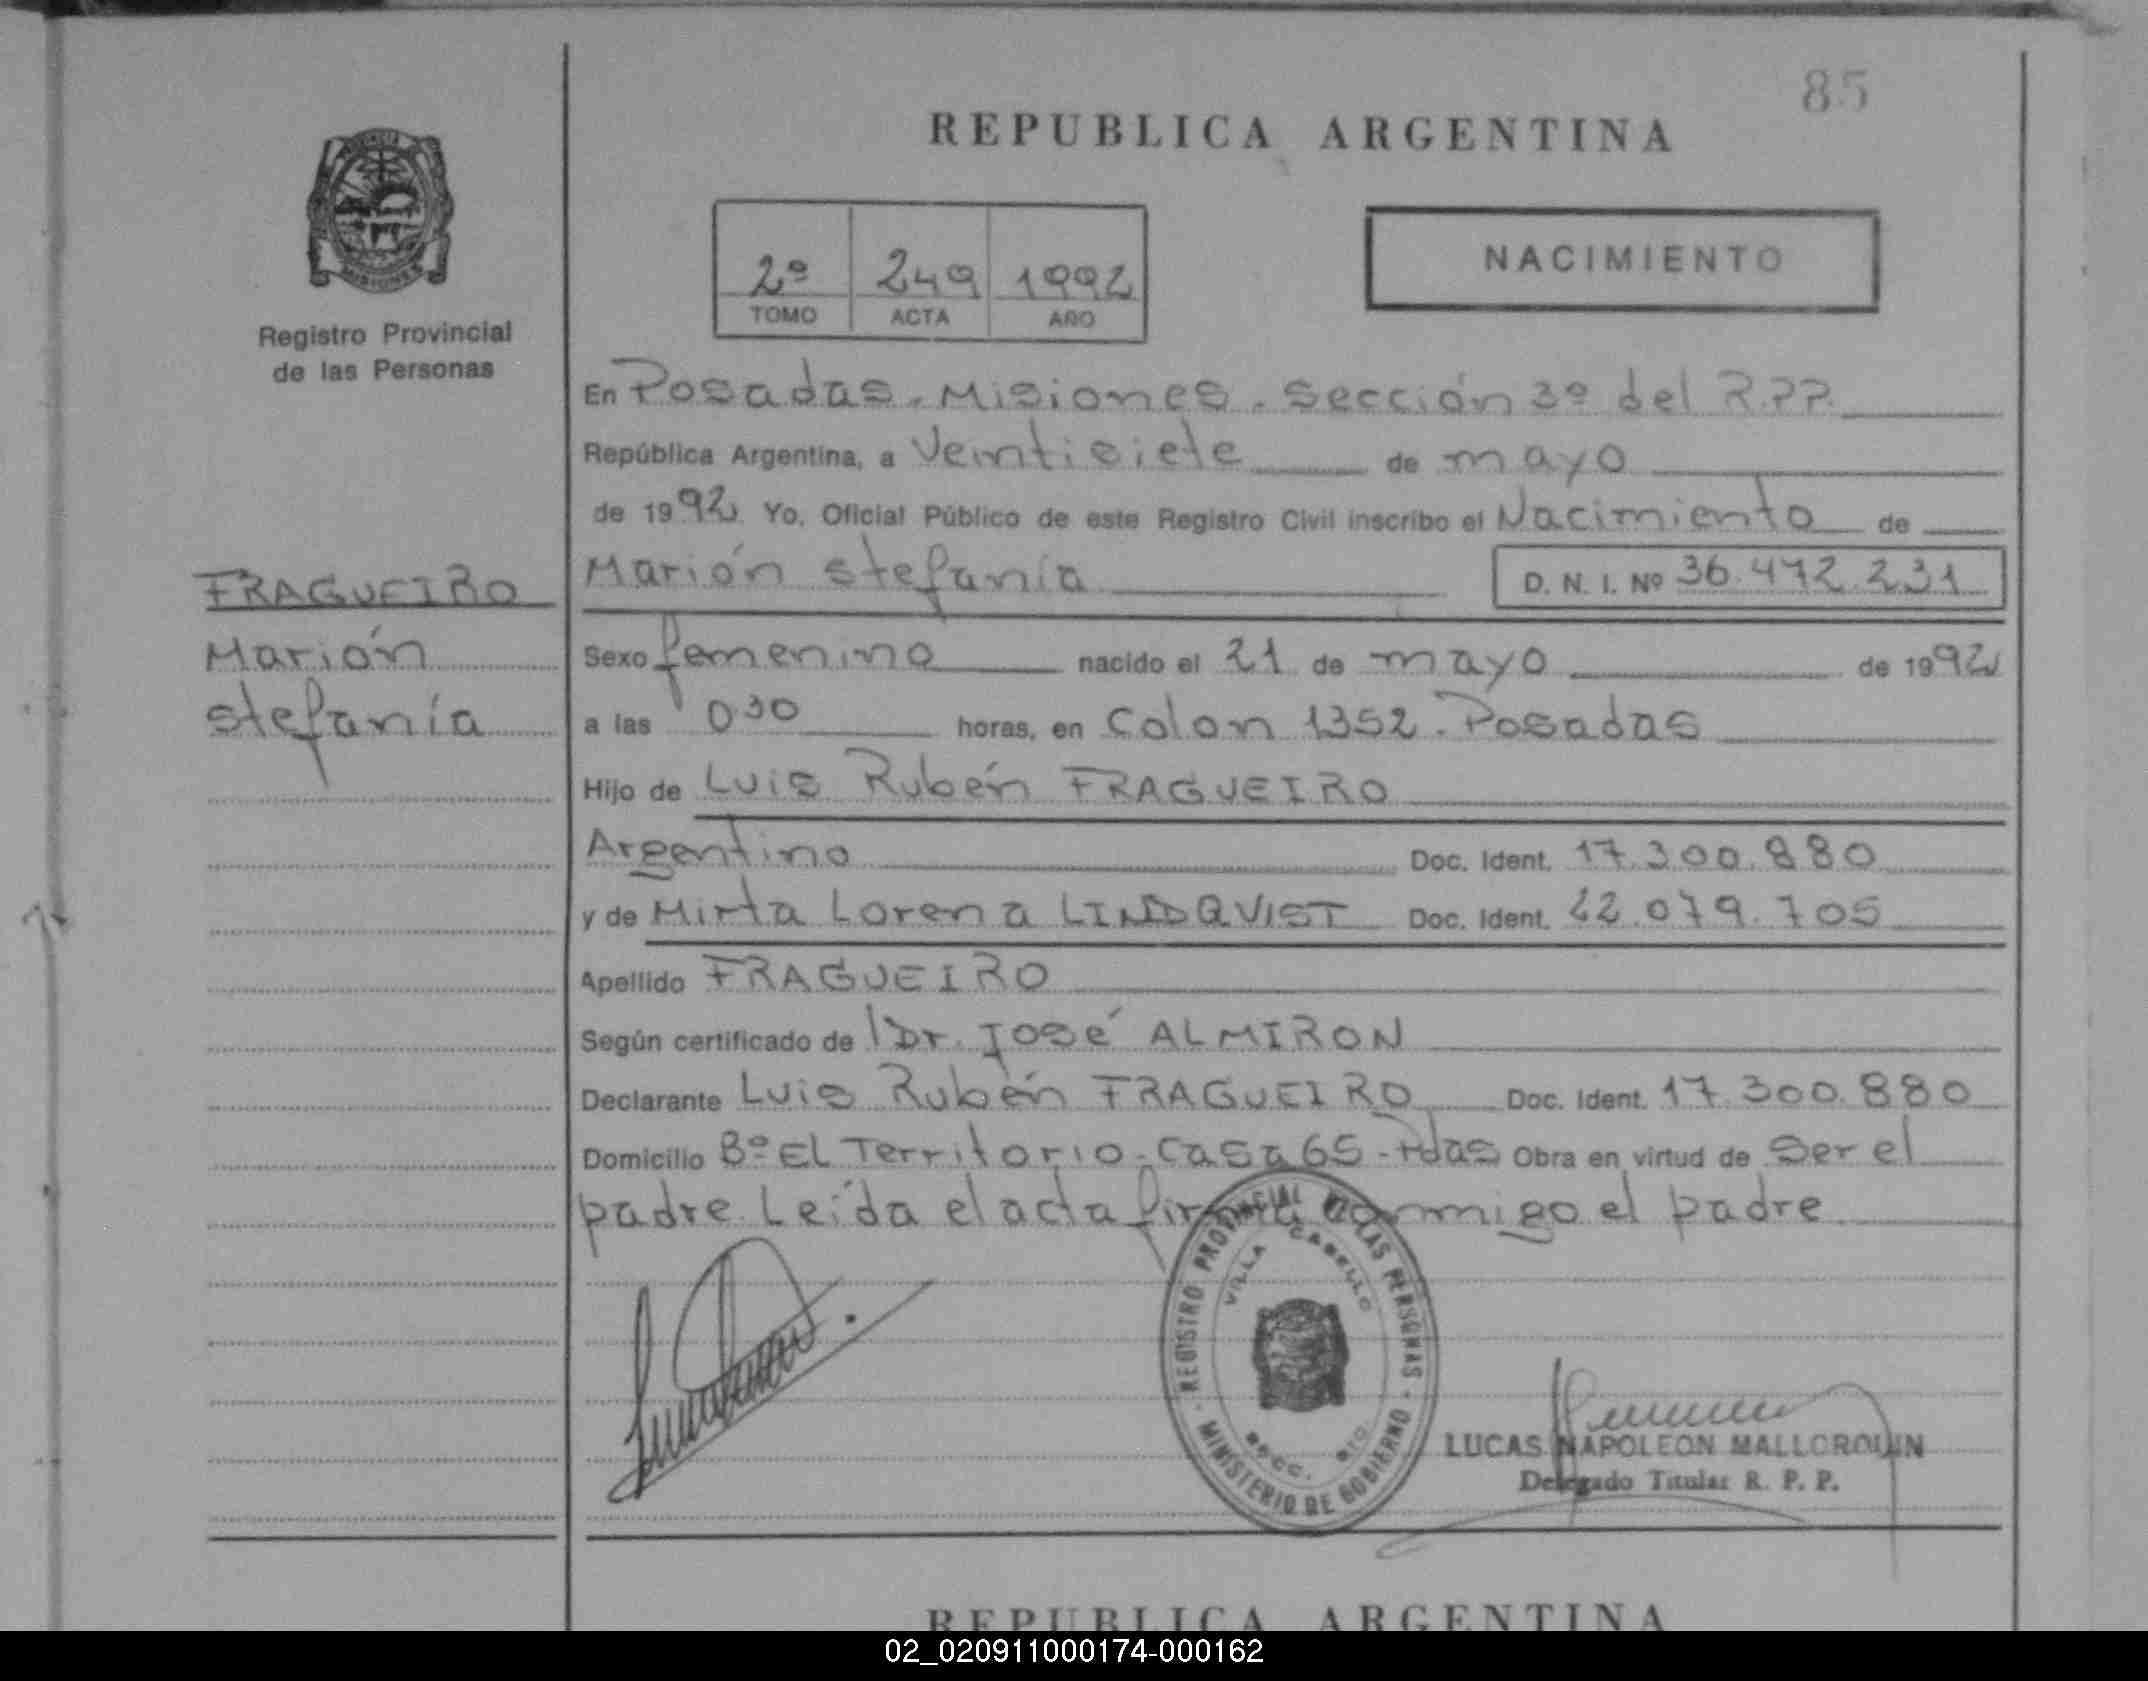 85
REPUBLICA ARGENTINA
MISIONES
Registro Provincial
de las Personas
2º 249 1992
TOMO ACTA AÑO
NACIMIENTO
En Posadas. Misiones. Sección 3º del R.P.P.
República Argentina, a Veintisiete de mayo
de 1992 Yo, Oficial Público de este Registro Civil inscribo el Nacimiento de
Marión Stefanía D. N. I. Nº 36.472.231
FRAGUEIRO
Marión
Stefanía
Sexo femenino nacido el 21 de mayo de 1992
a las 0.30 horas, en Colon 1352. Posadas
Hijo de Luis Rubén FRAGUEIRO
Argentino Doc. Ident. 17.300.880
y de Mirta Lorena LINDQVIST Doc. Ident. 22.079.705
Apellido FRAGUEIRO
Según certificado de Dr. José ALMIRON
Declarante Luis Rubén FRAGUEIRO Doc. Ident. 17.300.880
Domicilio Bº EL Territorio. Casa 65 - Pdas Obra en virtud de Ser el
padre. Leída el acta firma conmigo el padre
REGISTRO PROVINCIAL DE LAS PERSONAS
VILLA CABELLO
MINISTERIO DE GOBIERNO
LUCAS NAPOLEON MALLORQUIN
Delegado Titular R. P. P.
REPUBLICA ARGENTINA
02_020911000174-000162